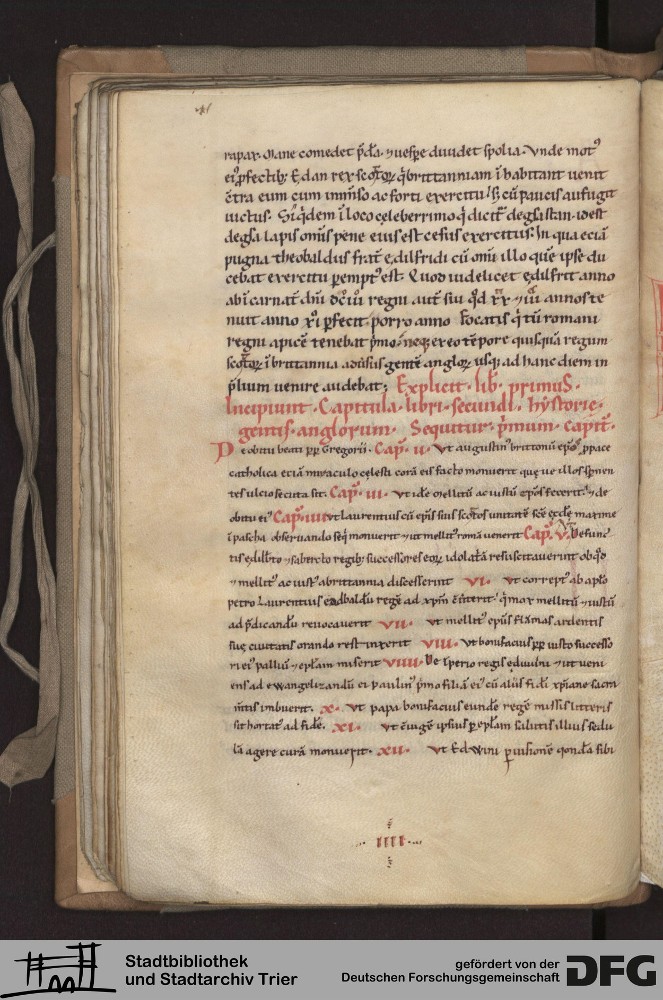 rapax. Mane comedet p̄dā. ⁊ uesp̄e diuidet spolia. Vnde motꝰ
eiꝰ ꝓfectibꝫ Edan rex scottoꝝ q̄ brittanniam īhabitant uenit
cōtra eum cum inmīso ac forti exercitu. sꝫ cū paucis aufugit
uictus. Siq̇dem ī loco celeberrimo q̇ dicit᷑ degsastan. idest
degsa lapis om̄is pene eius est cesus exercitus. In qua eciā
pugna theobaldus frat᷑ edilfridi cū om̄i illo quē ipse du
cebat exercitu ꝑemptꝰ est. Quod uidelicet edilfrit anno
ab ī carnat᷑ dn̄i dc̄iiiͦ regni aut᷑ sui q̇d xx ⁊ iiii annos te
nuit anno xi ꝑfecit. porro anno focatis q̇ tū romani
regni apicē tenebat p̄mo. neqꝫ ex eo tēpore quisquā regum
scottoꝝ ī brittannia aduͥsus gentē angloꝝ usqꝫ ad hanc diem in
p̄lium uenire audebat; Explicit. lib. primuS.
Incipiunt. Capitula. libri. secundi. hystorie.
gentis. anglorum. Sequitur. p̄mum. capit᷑.
De obitu beati pp̄ Gregorii. Cap̄. ii. Vt augustinꝰ brittonū ep̄os ꝓ pace
catholica eciā miraculo celesti corā eis facto monuerit queue illos sp̄nen
tes ulcio secuta sit. Cap̄. iii. Vt idē mellitū ac iustū ep̄os fecerit. ⁊ de
obitu eiꝰ Cap̄. iiii Vt laurentius cū ep̄is suis scottos unitatē scē ecclē maxime
ī pascha obseruando seq̇ monuerit ⁊ ut mellitꝰ romā uenerit Cap̄. V. De func
tis edilb̄to ⁊ sabercto regibꝫ successores eoꝝ idolatrā resuscitauerint ob q̇d
⁊ mellitꝰ ac iustꝰ a brittannia discesserint VI. Vt correptꝰ ab ap̄lo
petro Laurentius eadbaldū regē ad xp̄m cōuͥterit. q̇ mox mellitū ⁊ iustū
ad p̄dicandū reuocauerit VII. Vt mellitꝰ ep̄us flāmas ardentis
sue ciuitatis orando restinxerit VIII. Vt bonifacius pp̄ iusto successo
ri eiꝰ palliū ⁊ ep̄lam miserit VIIII. De īperio regis eduuini ⁊ ut ueni
ens ad ewangelizandū ei paulinꝰ p̄mo filiā eiꝰ cū aliis fidī xp̄iane sacra
m̄tis imbuerit. X. Vt papa bonifacius eundē regē missis litteris
sit hortatꝰ ad fidē. XI. Vt cōiugē ipsius ꝑ ep̄lam salutis illius sedu
lā agere curā monuerit. XII. Vt Edwini ꝑ uisionē qondā sibi
IIII
Stadtbibliothek
und Stadtarchiv Trier
gefördert von der
Deutschen Forschungsgemeinschaft
DFG